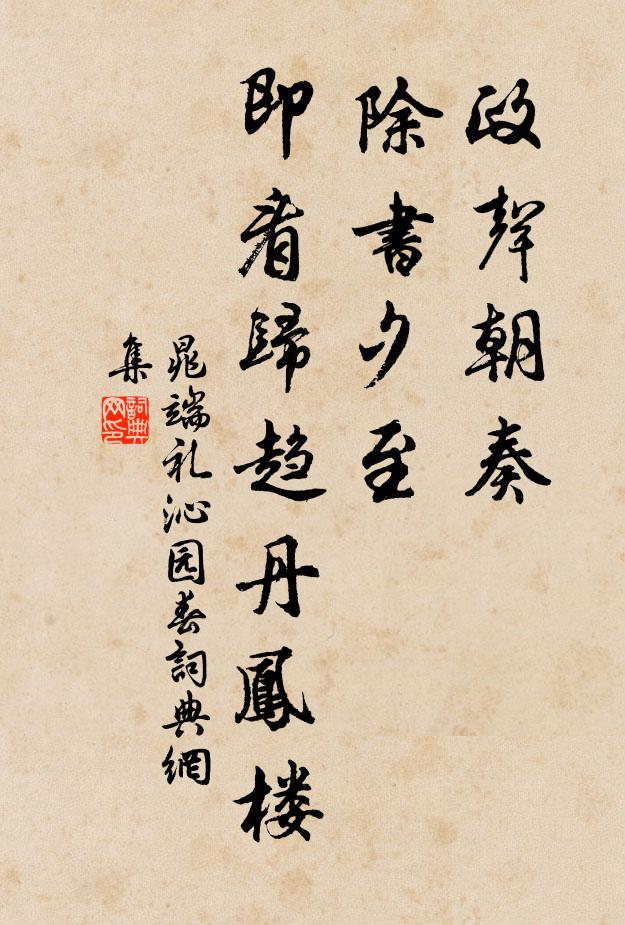 政聲朝奏
除書夕至
即看歸趋丹鳳楼
晁端礼沁园春詞典網
集
詞典
网印